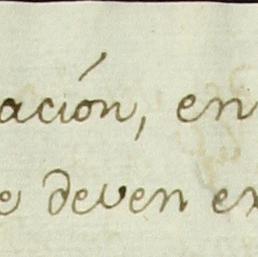 ación, en
e deven ex